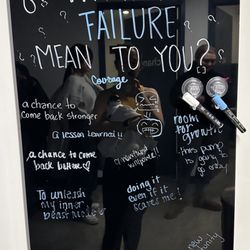 FAILURE
MEAN TO YOU?
Courage
a chance to
come back stronger
a lesson learned!!
room
for
growth
a chance to come
back better
this pump
is going
to go
crazy
To unleash
my inner
beast mode
doing it
even if it
scares me!
new